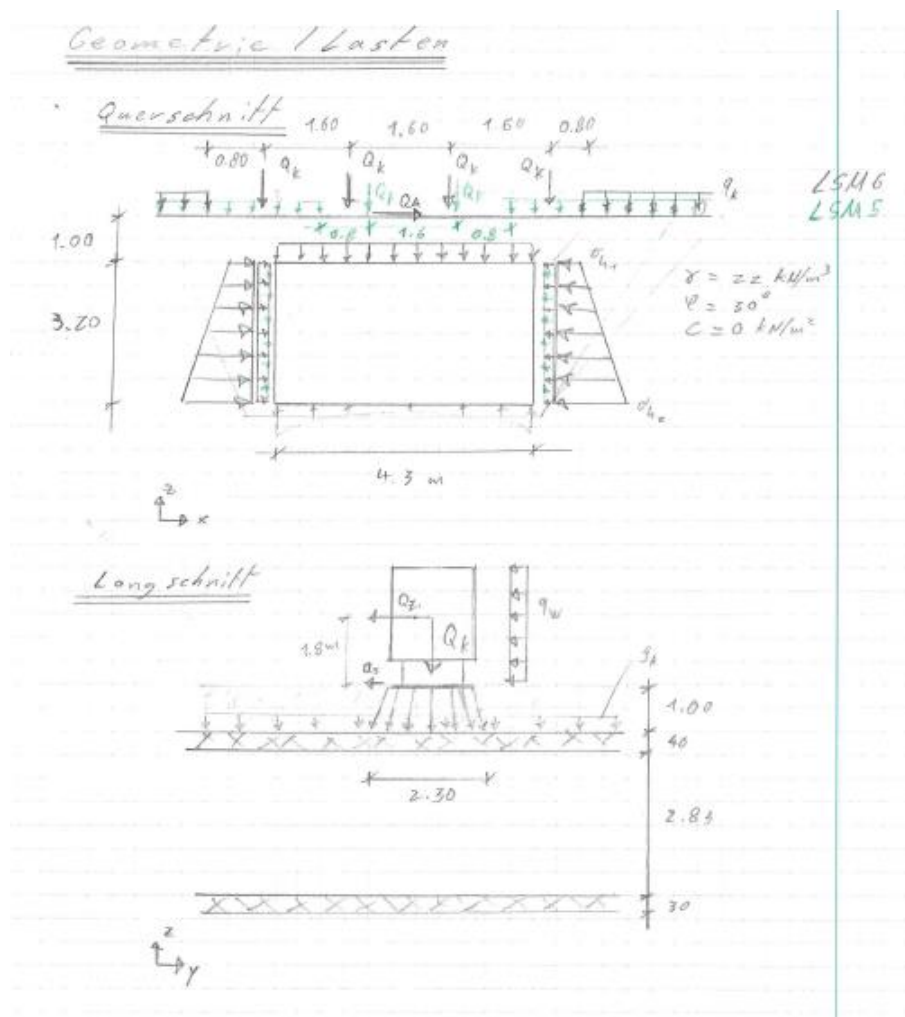 Geometrie / Lasten
Querschnitt
1.60 1.60 1.60 0.80
0.80 Qk Qk Qk Qk
Qk Qk qk
QA
LSM6
LSM5
0.8 1.6 0.8
1.00
σh1
γ = 22 kN/m³
φ = 30°
C = 0 kN/m²
3.20
σh2
4.3 m
z
x
Langschnitt
qw
1.8m
Qk
1.00
40
2.30
2.83
30
z
y